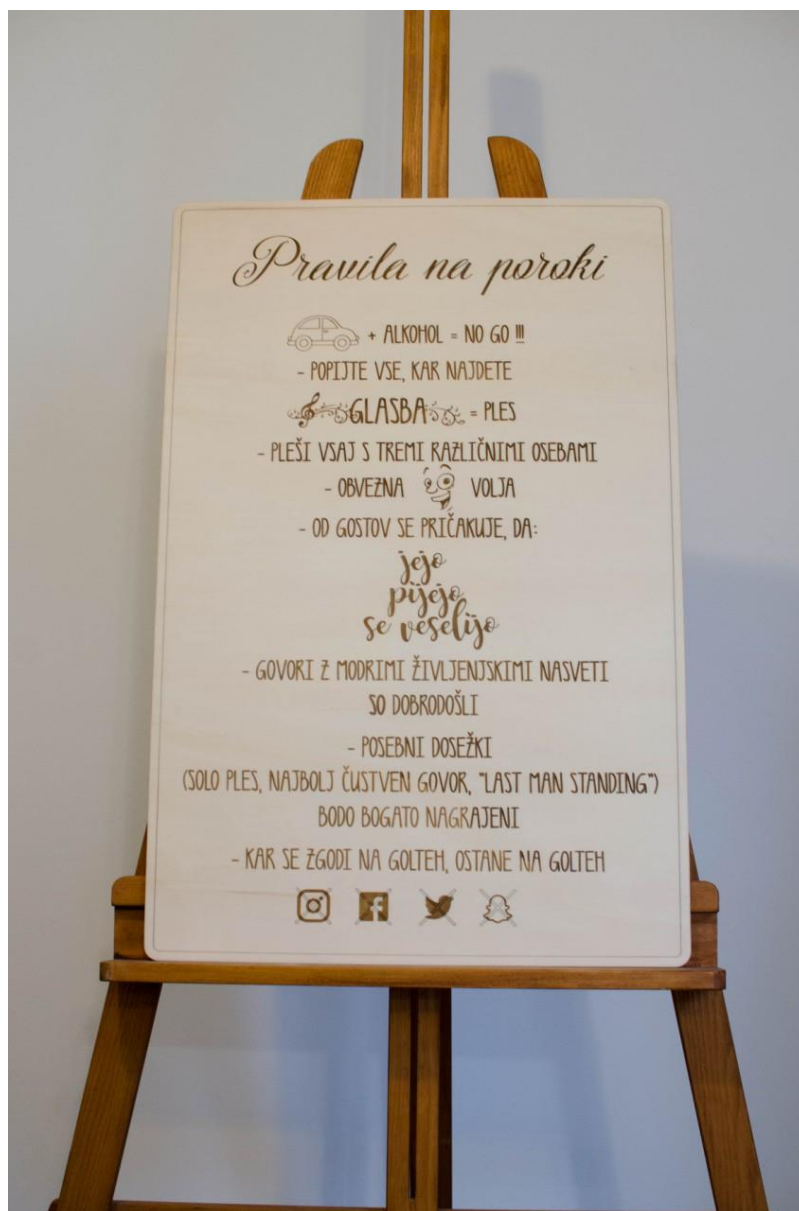 Pravila na poroki
+ ALKOHOL = NO GO !!!
- POPIJTE VSE, KAR NAJDETE
GLASBA = PLES
- PLEŠI VSAJ S TREMI RAZLIČNIMI OSEBAMI
- OBVEZNA VOLJA
- OD GOSTOV SE PRIČAKUJE, DA:
jejo
pijejo
se veselijo
- GOVORI Z MODRIMI ŽIVLJENJSKIMI NASVETI
SO DOBRODOŠLI
- POSEBNI DOSEŽKI
(SOLO PLES, NAJBOLJ ČUSTVEN GOVOR, "LAST MAN STANDING")
BODO BOGATO NAGRAJENI
- KAR SE ZGODI NA GOLTEH, OSTANE NA GOLTEH